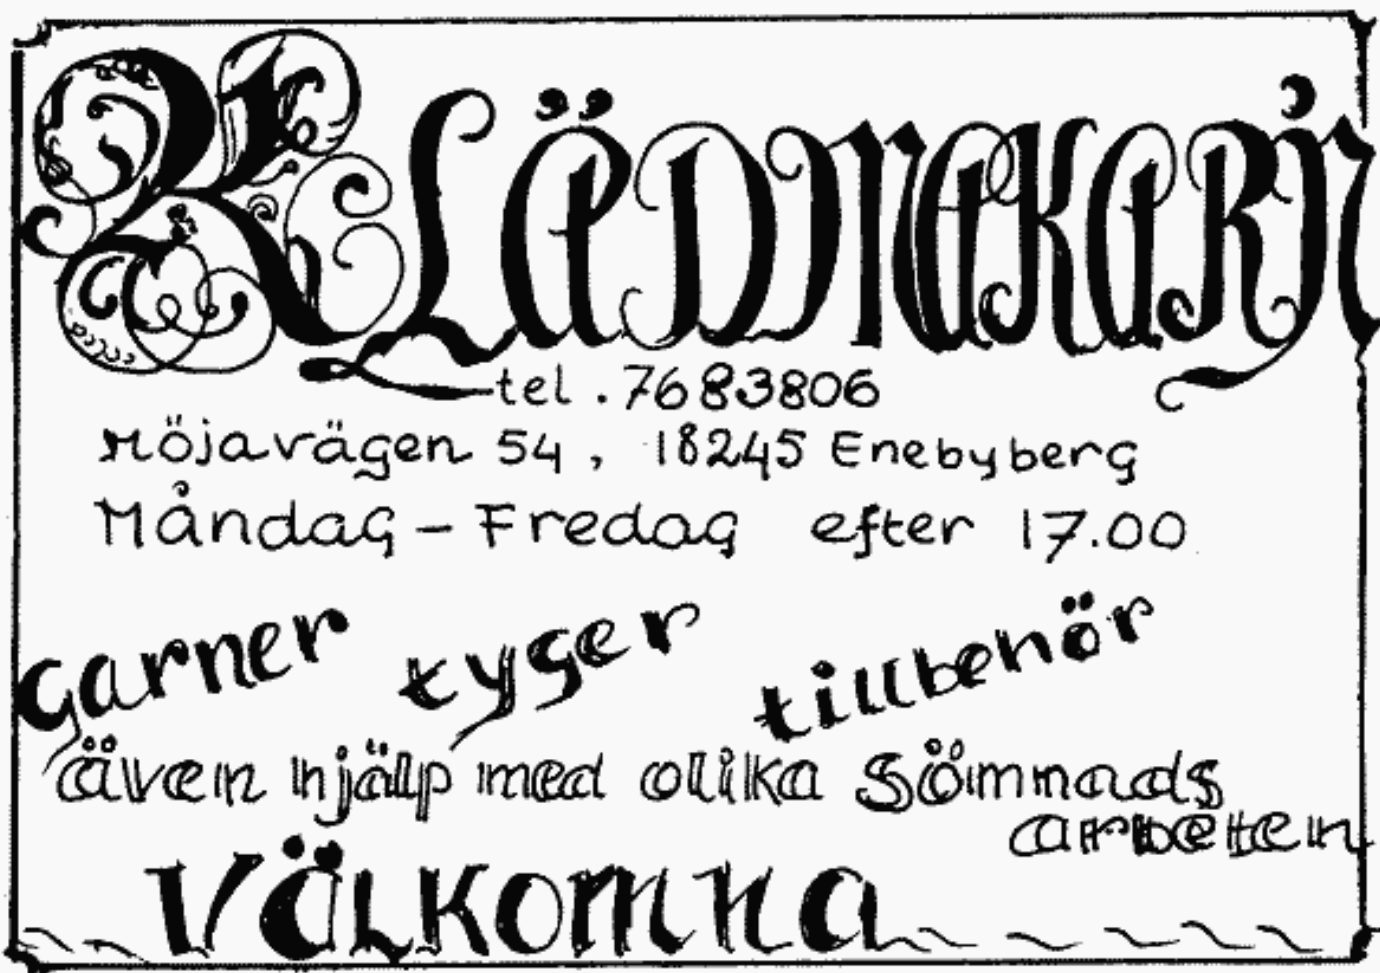 KLÄDMAKARIN
tel. 7683806
Möjavägen 54, 18245 Enebyberg
Måndag - Fredag efter 17.00
garner tyger tillbehör
även hjälp med olika sömnads
arbeten
VÄLKOMNA